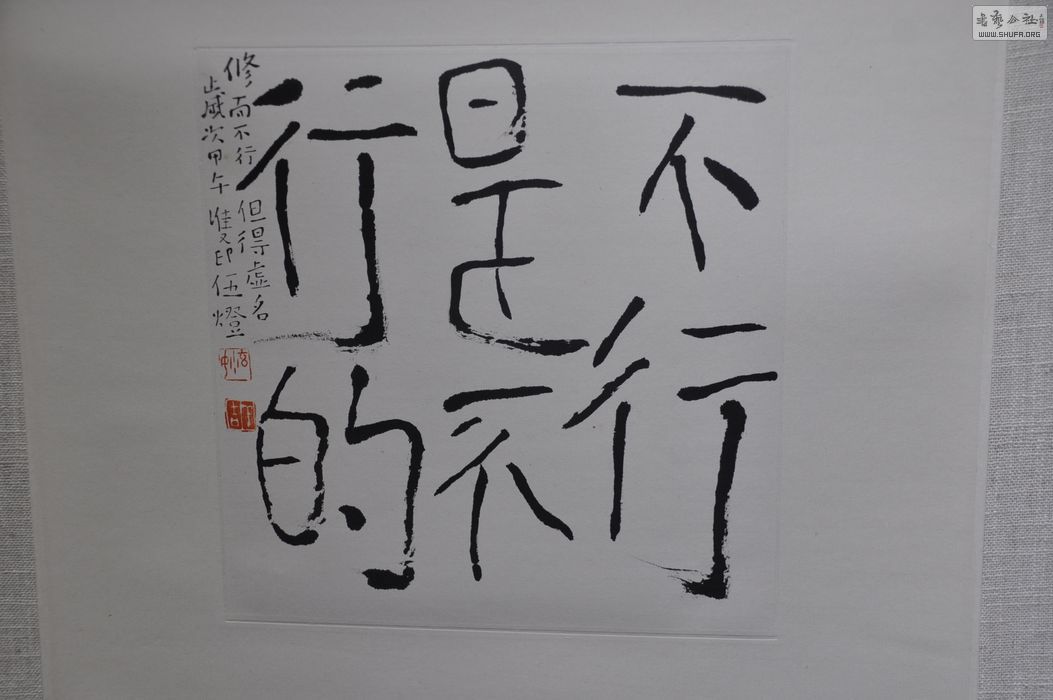 不行
是不
行的
修而不行但得虚名
止歲次甲午
印伍燈
書藝公社
WWW.SHUFA.ORG